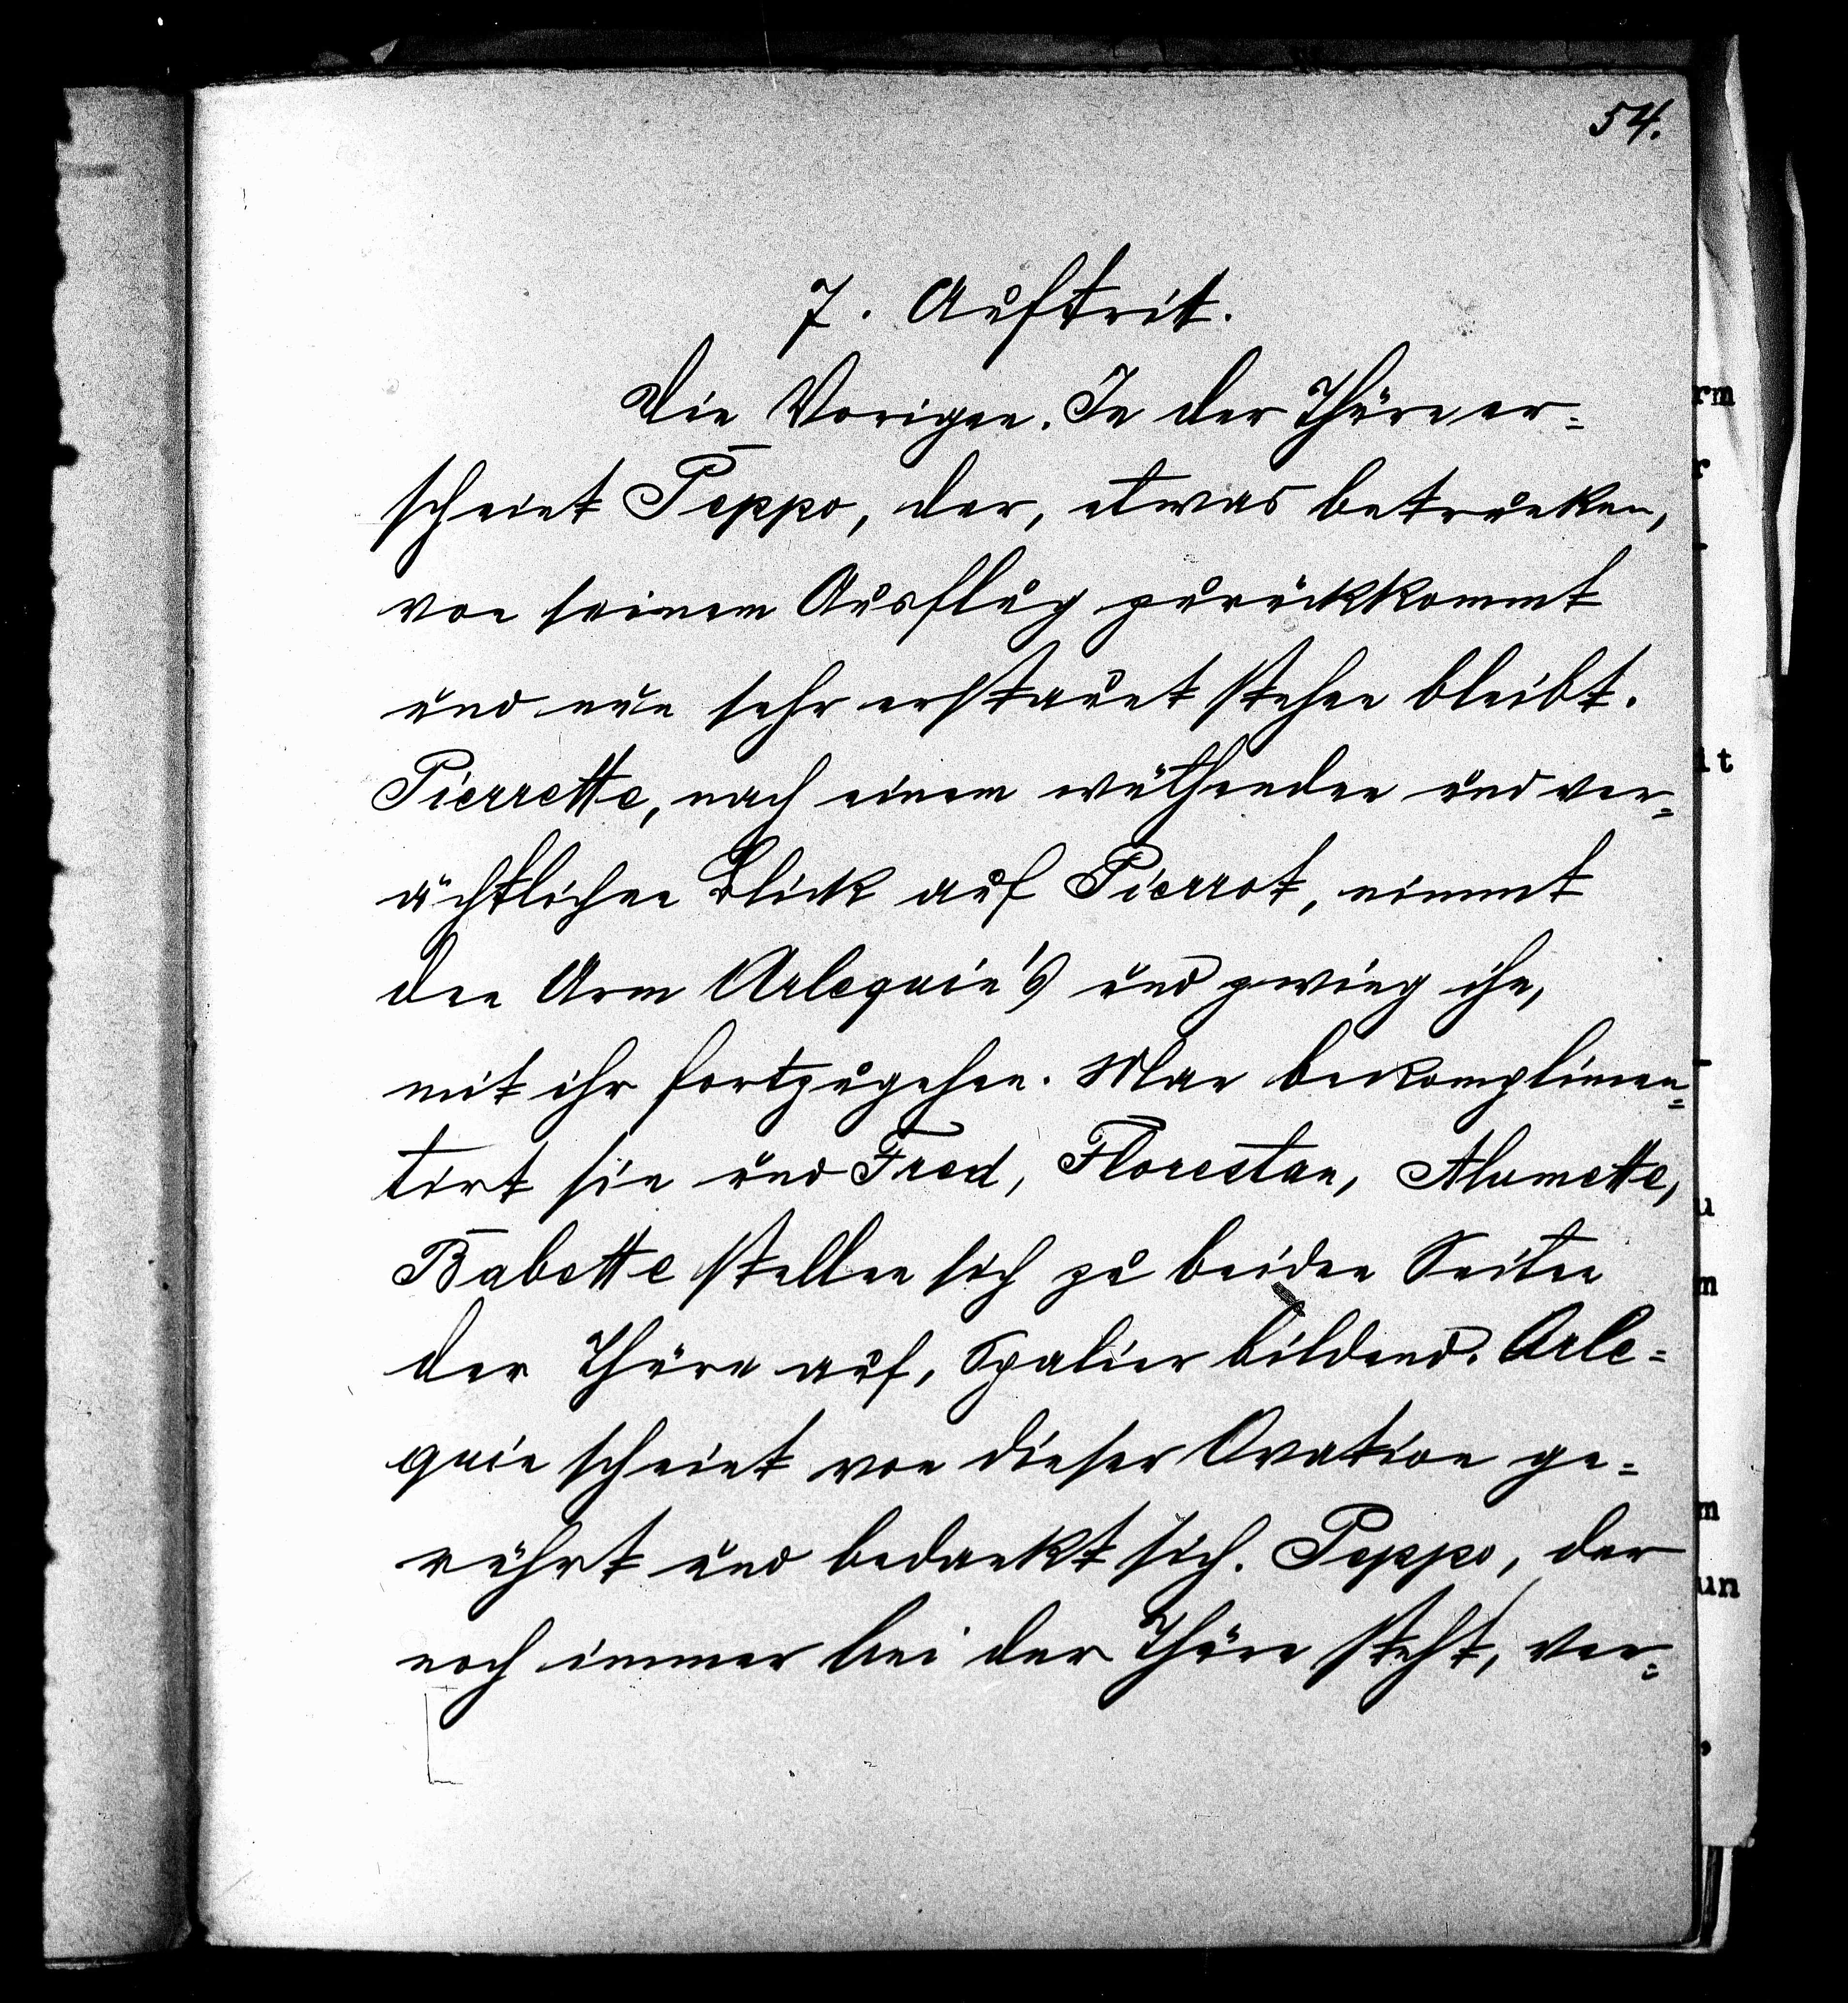 54.
7. Auftritt.
Die Vorigen. In der Thüre er=
scheint Peppo, der, etwas betrunken,
von seinem Ausflug zurückkommt
und nun sehr erstaunt stehen bleibt.
Pierrette, nach einem wüthenden und ver=
ächtlichen Blick auf Pierrot, nimmt
den Arm Arlequin's und zwing ihn,
mit ihr fortzugehen. Man bekomplimen=
tirt sie und Fred, Florestan, Alumette,
Babette stellen sich zu beiden Seiten
der Thüre auf, Spalier bildend. Arle=
quin scheint von dieser Ovation ge=
rührt und bedankt sich. Peppo, der
noch immer bei der Thüre steht, ver=
rm
r
-
it
-
u
m
m
un
,